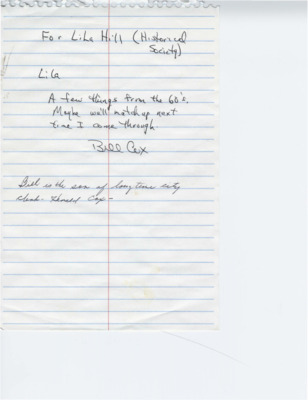 For Lila Hill (Historical
Society)
Lila
A few things from the 60's.
Maybe we'll match up next
time I come through.
Bill Cox
Bill is the son of longtime city
clerk Cox -